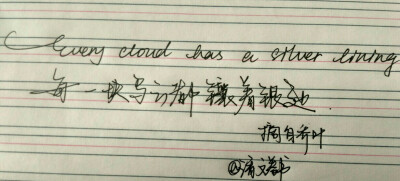 Every cloud has a silver lining
每一块乌云都镶着银边.
摘自乔叶